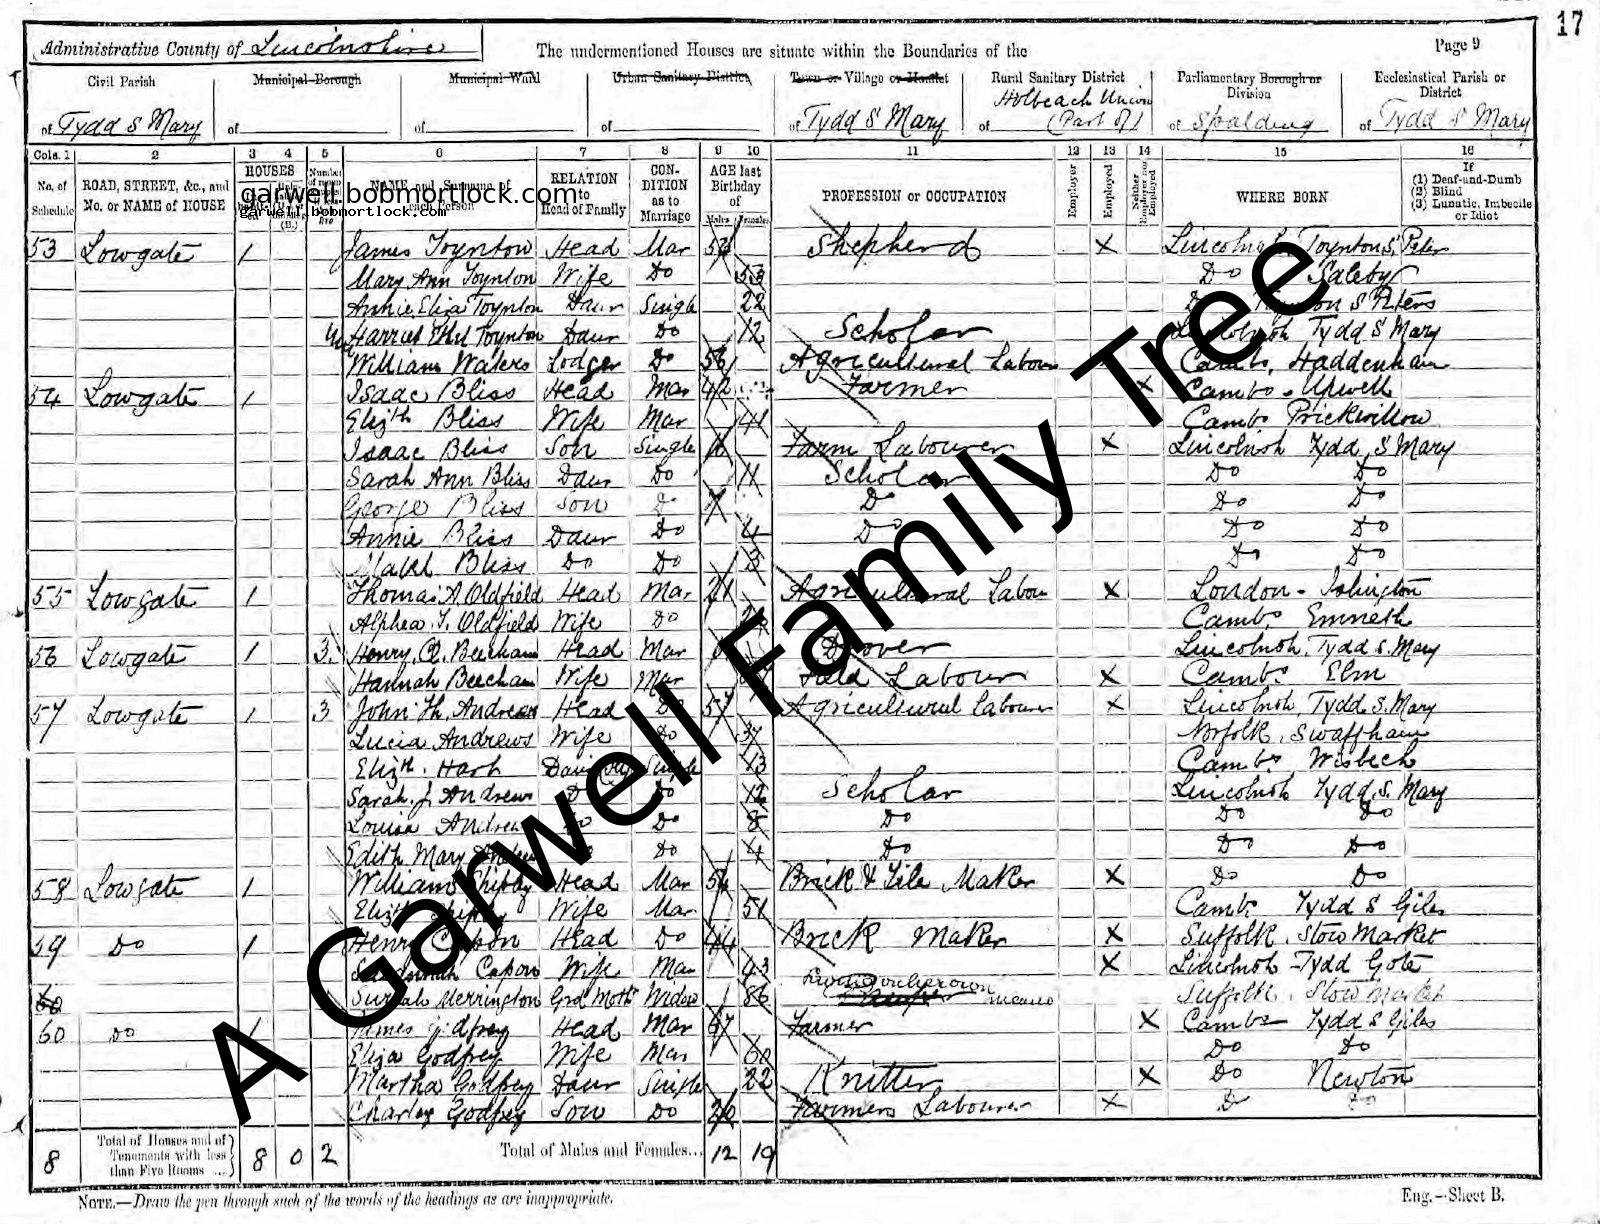 17
Administrative County of Lincolnshire The undermentioned Houses are situate within the Boundaries of the Page 9
Civil Parish Municipal Borough Municipal Ward Urban Sanitary District Town or Village or Hamlet Rural Sanitary District Parliamentary Borough or Division Ecclesiastical Parish or District
of Tydd S Mary of of of of Tydd S Mary of Holbeach Union (Part of) of Spalding of Tydd S Mary
Cols. 1 2 3 4 5 6 7 8 9 10 11 12 13 14 15 16
No. of Schedule ROAD, STREET, &c., and No. or NAME of HOUSE HOUSES NAME and Surname of each Person RELATION to Head of Family CONDITION as to Marriage AGE last Birthday of Males Females PROFESSION or OCCUPATION Employer Employed Neither Employer nor Employed WHERE BORN If (1) Deaf-and-Dumb (2) Blind (3) Lunatic, Imbecile or Idiot
garwell.bobmortlock.com
garwell.bobmortlock.com
53 Lowgate 1 James Toynton Head Mar Shepherd X Toynton S. Peter
Mary Ann Toynton Wife Do 53 Do Saleby
Annie Eliza Toynton Daur Single 22 S Peters
Harriet Ethel Toynton Daur Do 12 Scholar Tydd S Mary
William Waters Lodger Do 56 Agricultural Labour Cambs, Haddenham
54 Lowgate 1 Isaac Bliss Head Mar 42 Farmer X Cambs. Upwell
Elizth Bliss Wife Mar 41 Cambs Prickwillow
Isaac Bliss Son Single Farm Labourer X Lincolnsh Tydd S Mary
Sarah Ann Bliss Daur Do 11 Scholar Do Do
George Bliss Son Do 7 Do Do Do
Annie Bliss Daur Do 4 Do Do Do
Bliss Do Do 3 Do Do
55 Lowgate 1 Thomas A. Oldfield Head Mar 21 Agricultural Labour X London - Islington
Alphea. T. Oldfield Wife Do Cambs Emneth
56 Lowgate 1 3. Henry. Beecham Head Mar Drover Lincolnsh. Tydd S. Mary
Hannah Beecham Wife Mar Field Labour X Cambs Elm
57 Lowgate 1 3 John Th. Andrews Head Do 57 Agricultural Labourer X Lincolnsh. Tydd S. Mary
Lucia Andrews Wife Do 37 Norfolk, Swaffham
Elizth. Single 13 Cambs Wisbech
Sarah. J. Andrews Do 12 Scholar Lincolnsh Tydd S. Mary
Louisa Andrews Do Do 8 Do Do Do
Edith Mary Do 4 Do Do Do
58 Lowgate 1 William Shipley Head Mar 54 Brick & Tile Maker X Do Do
Elizth Shipley Wife Mar 51 Cambs Tydd S Giles
59 Do 1 Henry Capon Head Do 44 Brick Maker X Suffolk. Stow Market
Capon Wife Mar 43 X Lincolnsh - Tydd Gote
60 Merrington Grd Moth Widow 86 Living on her own means Suffolk. Stow Market
60 Do 1 James Godfrey Head Mar 67 Farmer X Cambs Tydd S Giles
Eliza Godfrey Wife Mar 60 Do Do
Martha Godfrey Daur Single 22 Knitter X Do Newton
Charley Godfrey Son Do 20 Farmers Labourer X Do Do
8 Total of Houses and of Tenements with less than Five Rooms 8 0 2 Total of Males and Females... 12 19
NOTE.—Draw the pen through such of the words of the headings as are inappropriate. Eng.—Sheet B.
A Garwell Family Tree